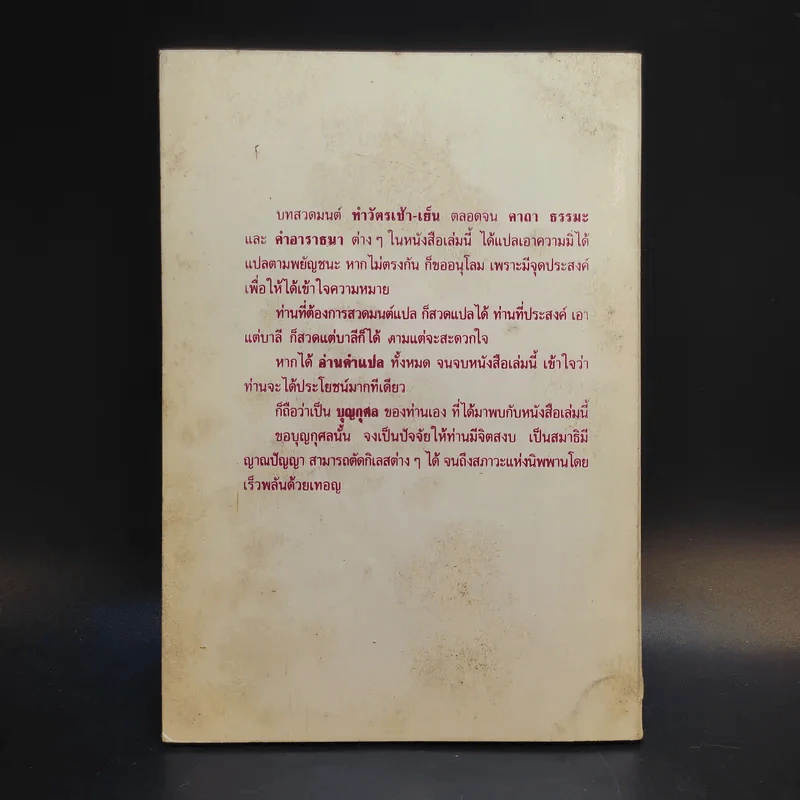 บทสวดมนต์ ทำวัตรเช้า-เย็น ตลอดจน คาถา ธรรมะ
และ คำอาราธนา ต่าง ๆ ในหนังสือเล่มนี้ ได้แปลเอาความมิได้
แปลตามพยัญชนะ หากไม่ตรงกัน ก็ขออนุโลม เพราะมีจุดประสงค์
เพื่อให้ได้เข้าใจความหมาย
ท่านที่ต้องการสวดมนต์แปล ก็สวดแปลได้ ท่านที่ประสงค์ เอา
แต่บาลี ก็สวดแต่บาลีก็ได้ ตามแต่จะสะดวกใจ
หากได้ อ่านคำแปล ทั้งหมด จนจบหนังสือเล่มนี้ เข้าใจว่า
ท่านจะได้ประโยชน์มากทีเดียว
ก็ถือว่าเป็น บุญกุศล ของท่านเอง ที่ได้มาพบกับหนังสือเล่มนี้
ขอบุญกุศลนั้น จงเป็นปัจจัยให้ท่านมีจิตสงบ เป็นสมาธิมี
ญาณปัญญา สามารถตัดกิเลสต่าง ๆ ได้ จนถึงสภาวะแห่งนิพพานโดย
เร็วพลันด้วยเทอญ